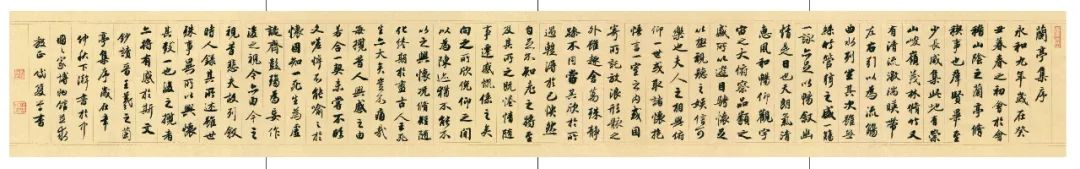 蘭亭集序
永和九年歲在癸
丑暮春之初會於會
稽山陰之蘭亭修
稧事也羣賢畢至
少長咸集此地有崇
山峻嶺茂林修竹又
有清流激湍暎帶
左右引以為流觴
曲水列坐其次雖無
絲竹管弦之盛一觴
一詠亦足以暢敘幽
情是日也天朗氣清
惠風和暢仰觀宇
宙之大俯察品類之
盛所以遊目騁懷足
以極視聽之娛信可
樂也夫人之相與俯
仰一世或取諸懷抱
悟言一室之內或因
寄所託放浪形骸之
外雖趣舍萬殊靜
躁不同當其欣於所
遇暫得於己怏然
自足不知老之將至
及其所之既惓情隨
事遷感慨係之矣
向之所欣俛仰之間
以為陳迹猶不能不
以之興懷況脩短隨
化終期於盡古人云死
生亦大矣豈不痛哉
每攬昔人興感之由
若合一契未嘗不臨
文嗟悼不能喻之於
懷固知一死生為虛
誕齊彭殤為妄作
後之視今亦由今之
視昔悲夫故列敘
時人錄其所述雖世
殊事異所以興懷
其致一也後之攬者
亦將有感於斯文
鈔讀晉王羲之蘭
亭集序歲在辛
仲秋下澣書於中
國國家博物館
教正